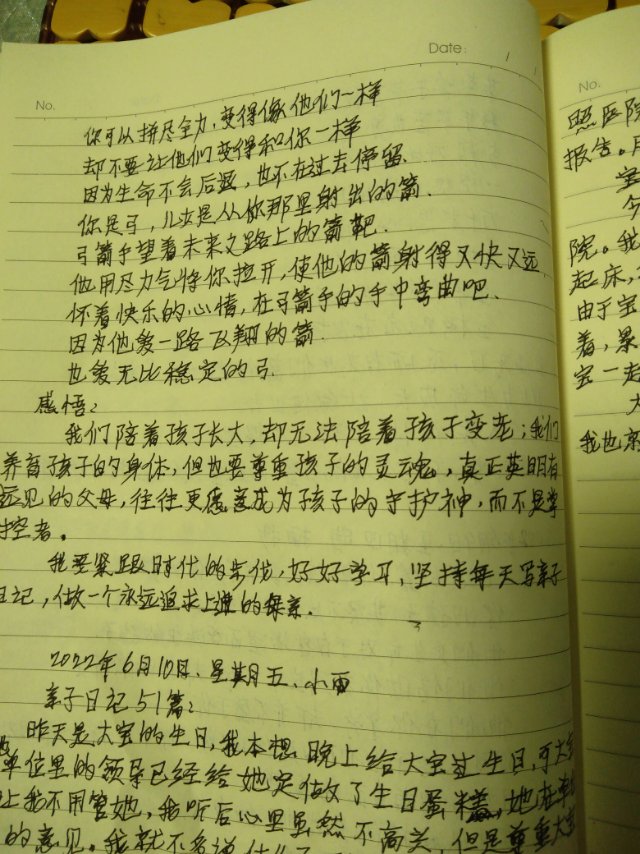 Date:
No.
你可以拼尽全力,变得像他们一样
却不要让他们变得和你一样
因为生命不会后退,也不在过去停留.
你是弓,儿女是从你那里射出的箭.
弓箭手望着未来之路上的箭靶.
他用尽力气将你拉开,使他的箭射得又快又远.
怀着快乐的心情,在弓箭手的手中弯曲吧.
因为他爱一路飞翔的箭.
也爱无比稳定的弓.
感悟:
我们陪着孩子长大,却无法陪着孩子变老;我们
养育孩子的身体,但也要尊重孩子的灵魂,真正英明有
远见的父母,往往更愿意成为孩子的守护神,而不是掌
控者。
我要紧跟时代的步伐,好好学习,坚持每天写亲子
日记,做一个永远追求上进的母亲.
2022年6月10日.星期五.小雨
亲子日记51篇:
昨天是大宝的生日,我本想晚上给大宝过生日,可大宝
单位里的领导已经给她定做了生日蛋糕,她在
让我不用管她,我听后心里虽然不高兴,但是尊重大宝
的意见。我就不多说什么
No.
照医院
报告。
宝
今
院。我
起床,
由于宝
着,累
宝一起
大
我也